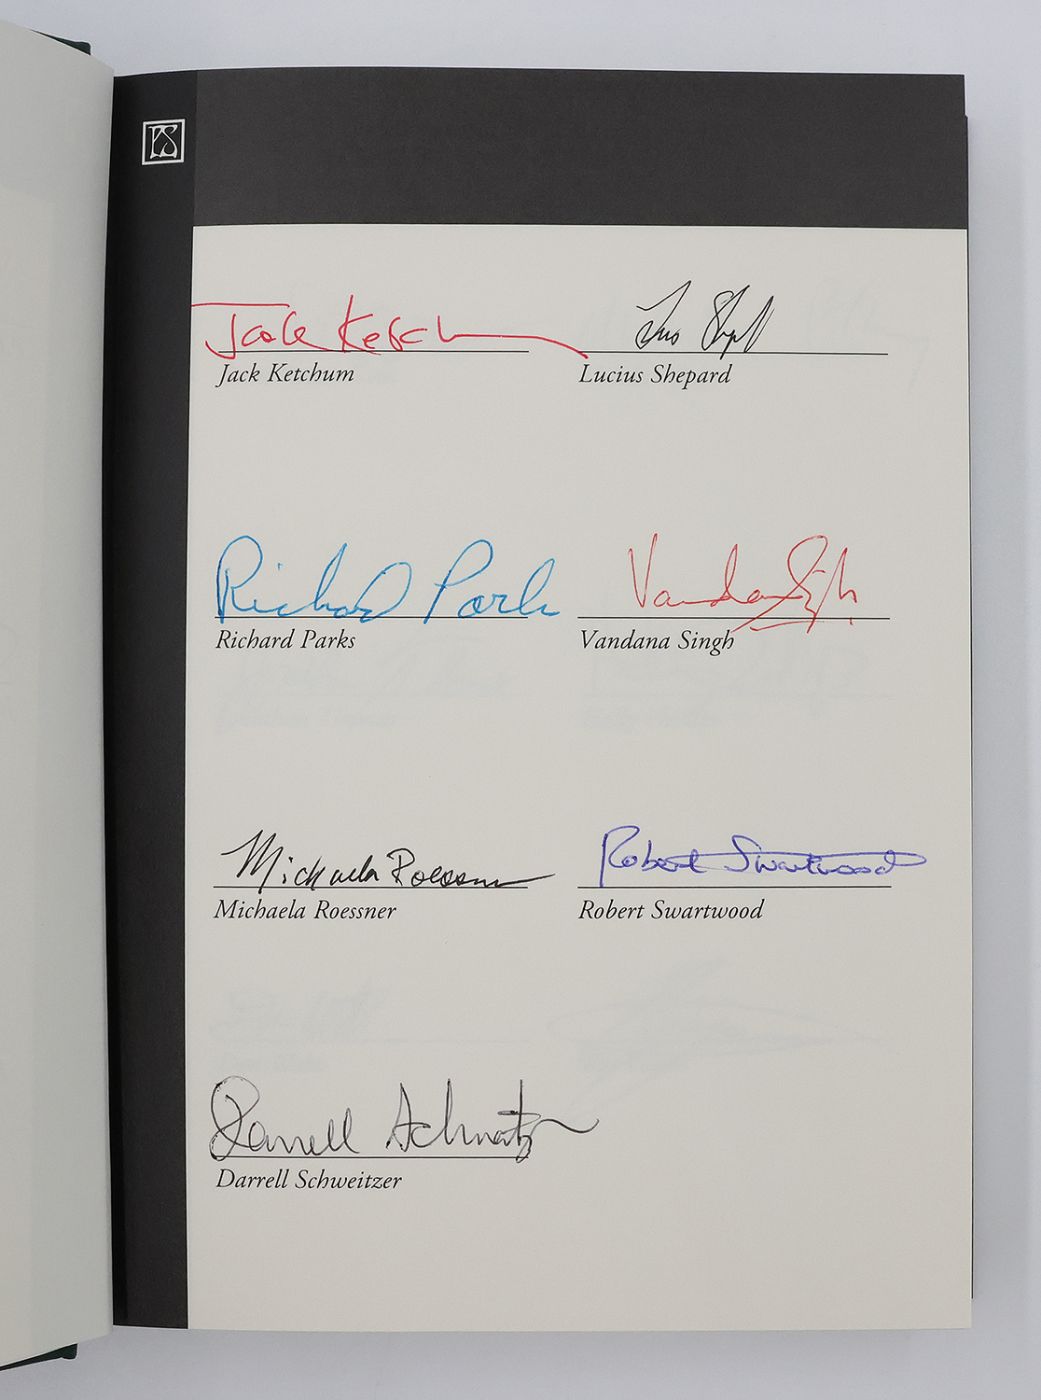 PS
Jack Ketchum Lucius Shepard
Jack Ketchum Lucius Shepard
Richard Parks Vandana Singh
Richard Parks Vandana Singh
Michaela Roessner Robert Swartwood
Michaela Roessner Robert Swartwood
Darrell Schweitzer
Darrell Schweitzer